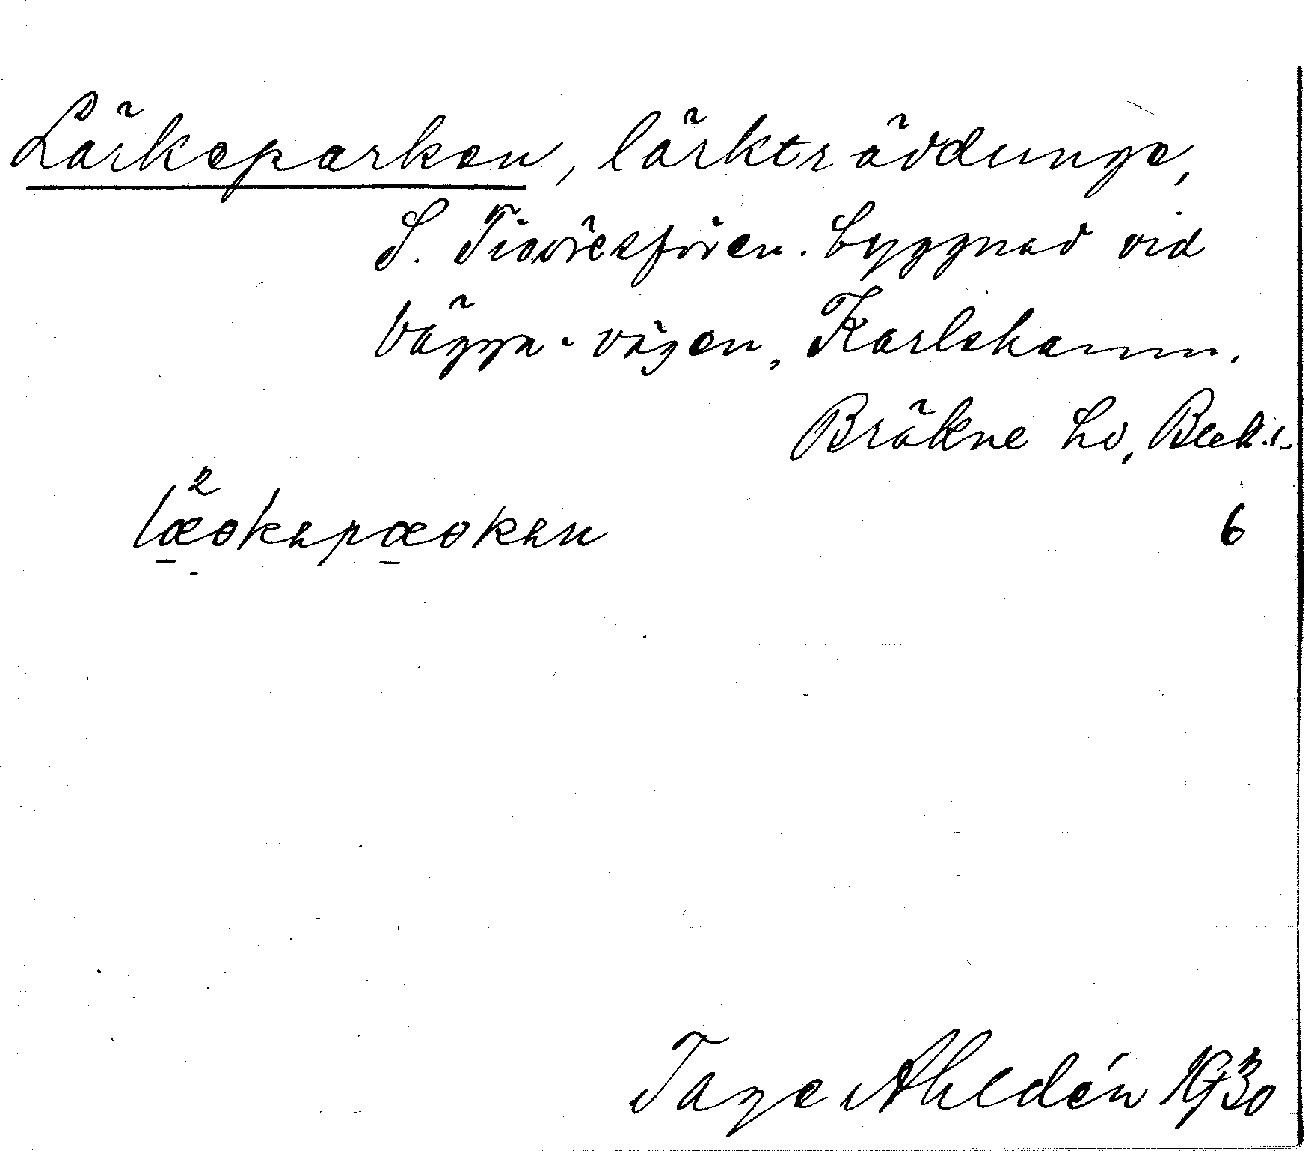 Lärkeparken, lärkträddunge,
S. Tivolisfören. byggnad vid
Vägga-vägen, Karlshamn.
Bräkne hd, Blek.
2
6
Tage Ahldén 1930